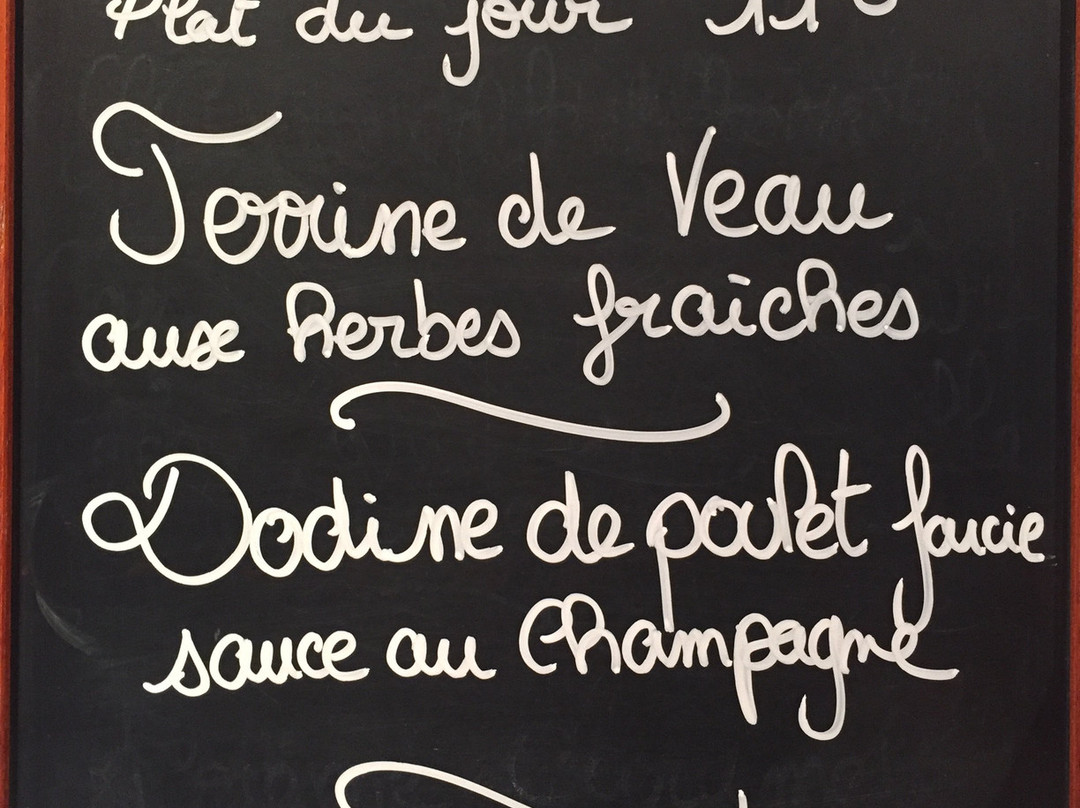 Plat du jour 11
Terrine de Veau
aux herbes fraîches
Dodine de poulet farcie
sauce au Champagne